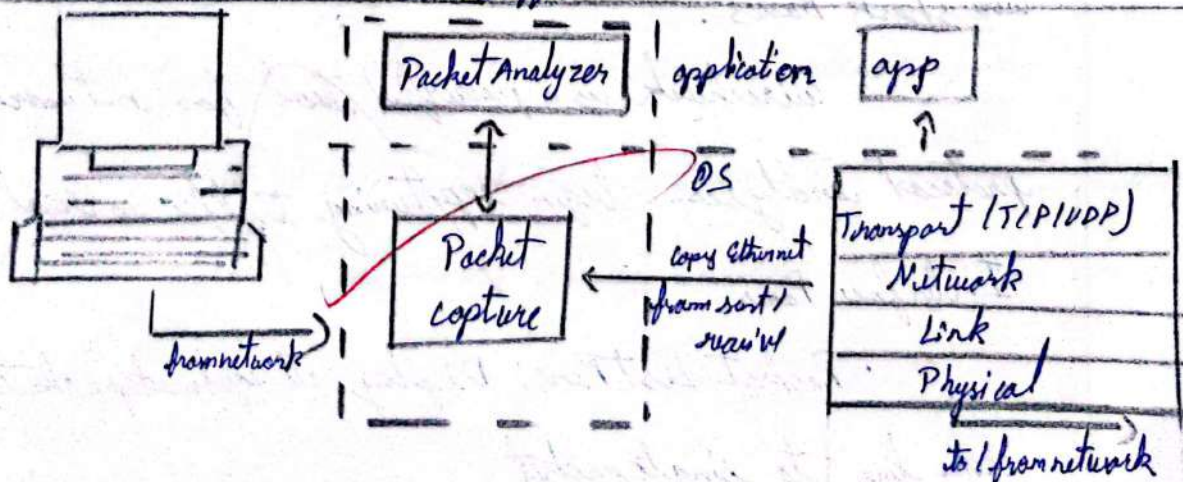 Packet Analyzer
application
app
OS
Packet
capture
copy Ethernet
from sent /
receive
Transport (TCP/UDP)
Network
Link
Physical
from network
to / from network